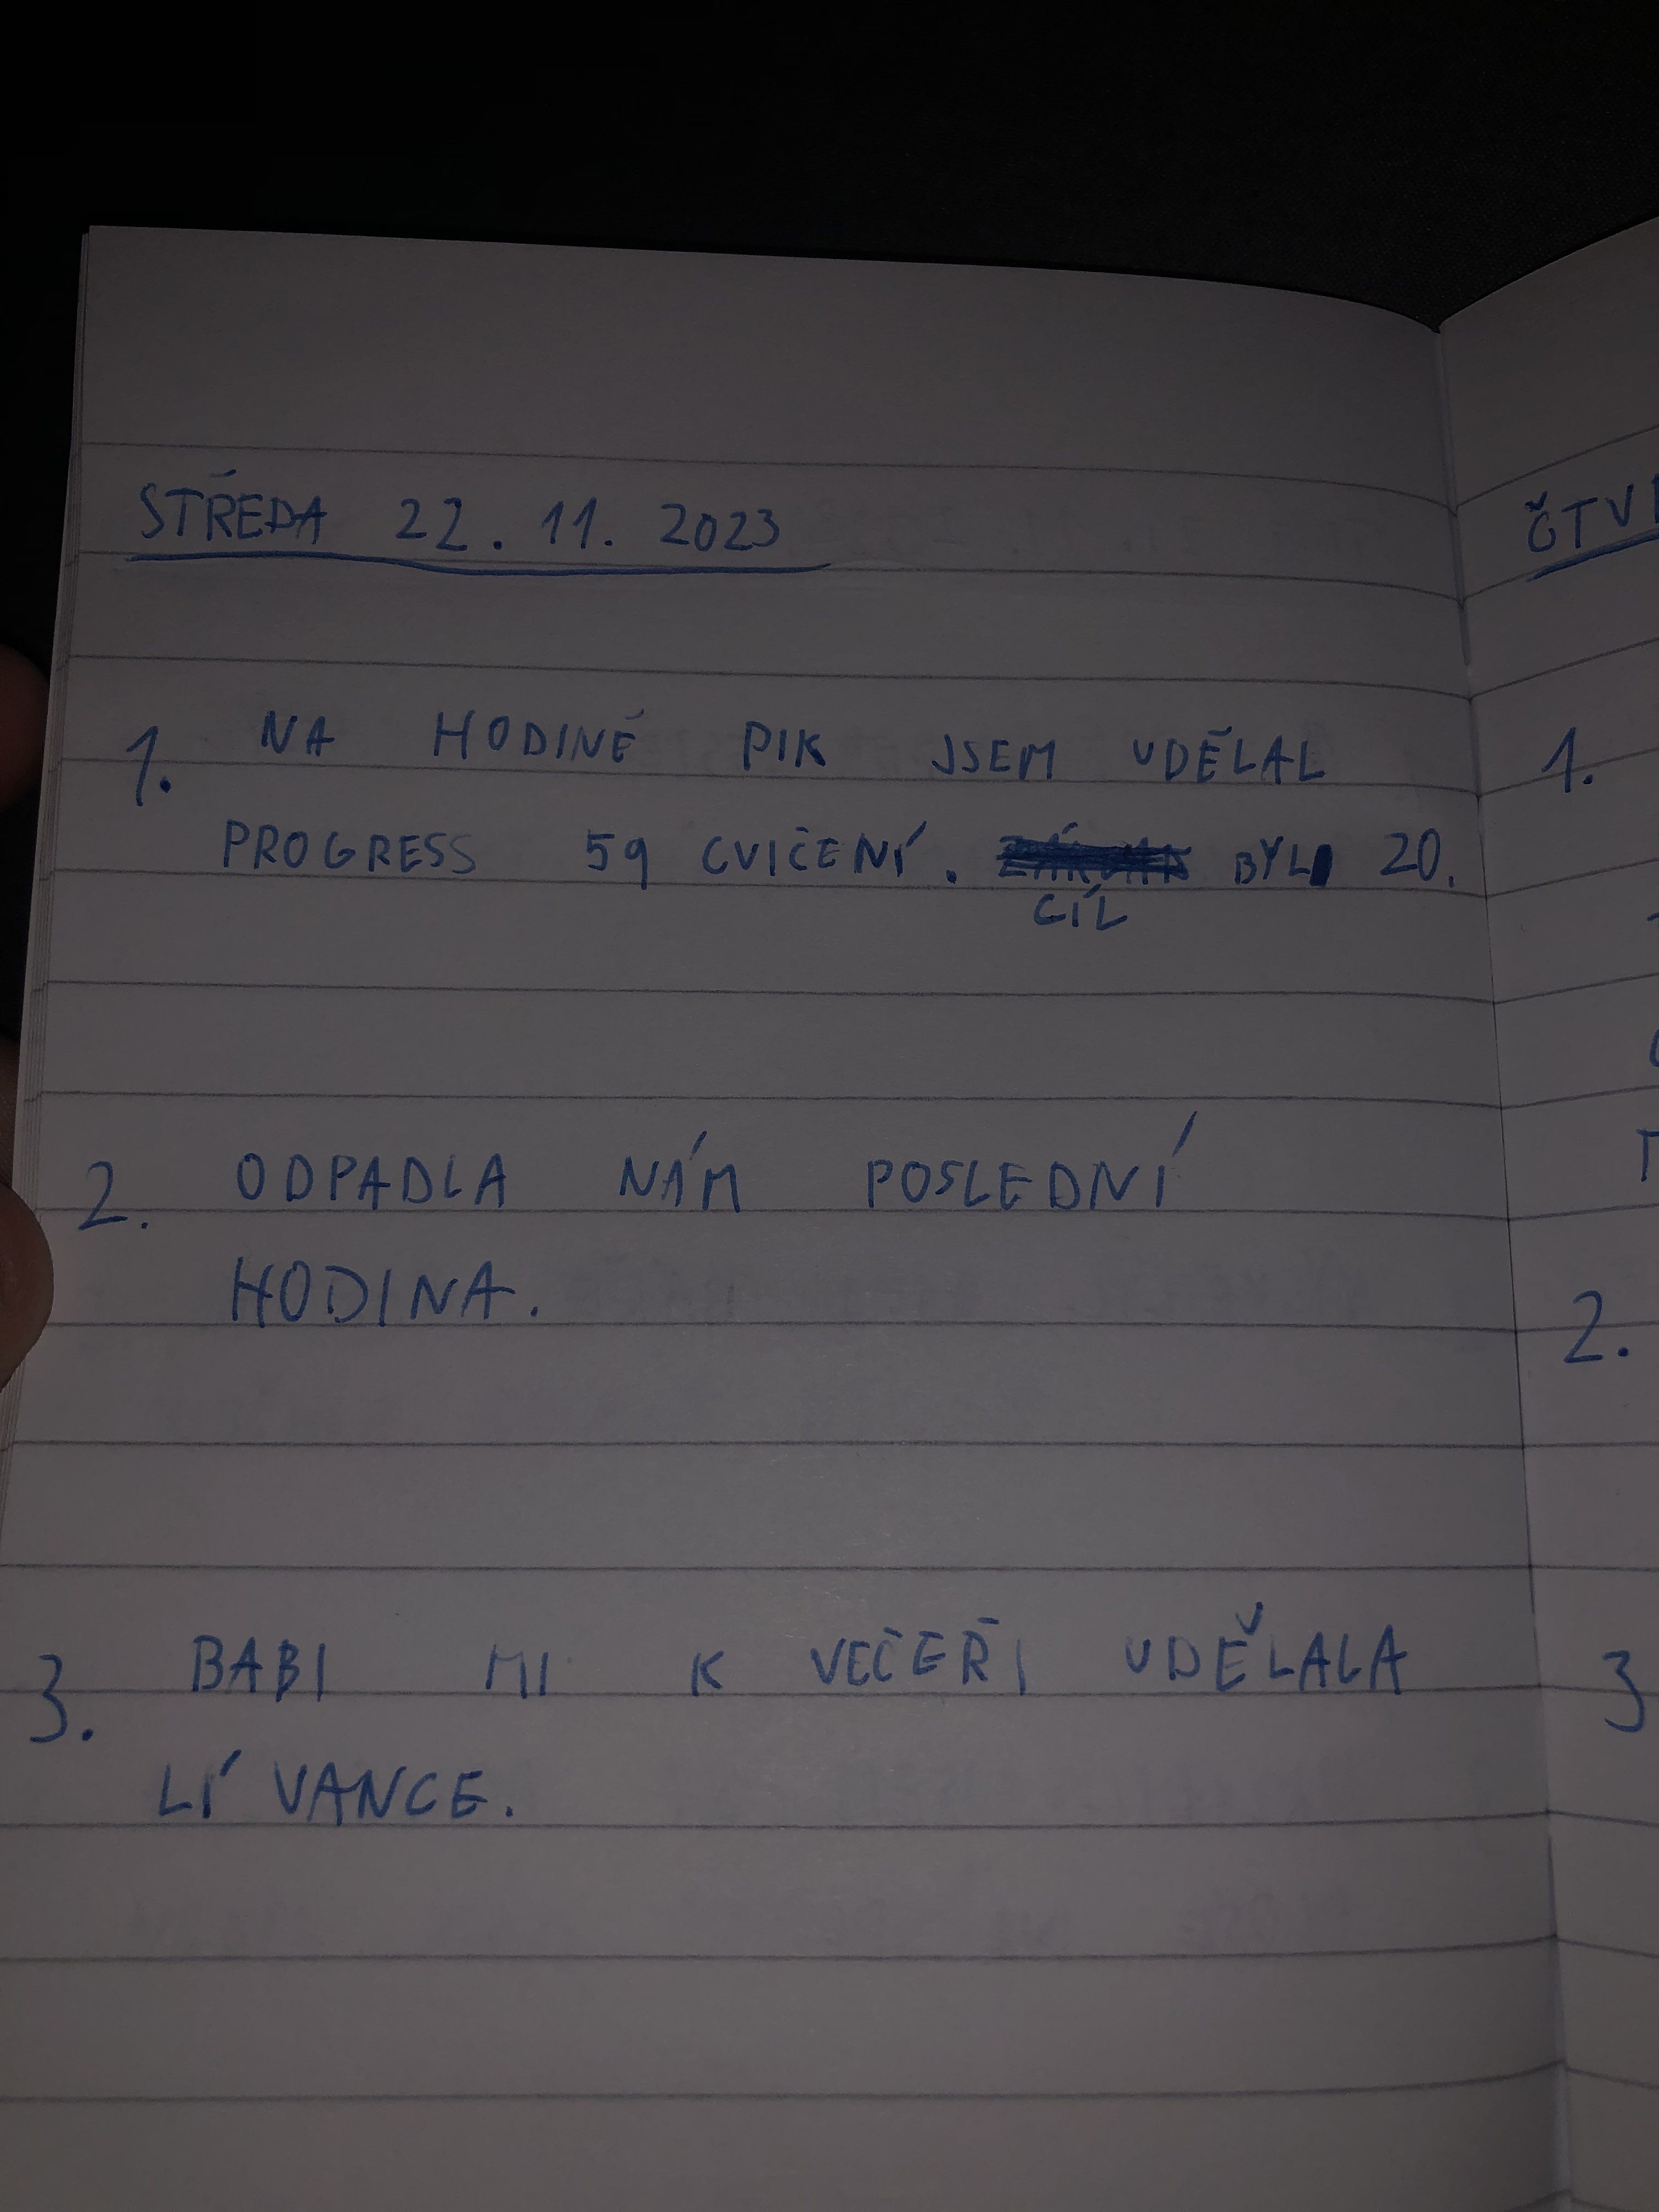 STŘEDA 22. 11. 2023
1. NA HODINĚ PIK JSEM UDĚLAL
PROGRESS 59 CVIČENÍ. BYL 20.
CÍL
2. ODPADLA NÁM POSLEDNÍ
HODINA.
3. BABI MI K VEČEŘI UDĚLALA
LÍVANCE.
1.
2.
3